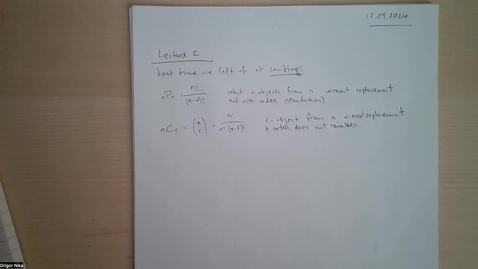 12.09.2024
Lecture 2
Last time we left of at counting!
nPr = n! / (n-r)! select r objects from n without replacement
but with order (permutation)
nCr = (n r) = n! / r!(n-r)! r-object from n without replacement
+ order does not matter
Grigor Nika